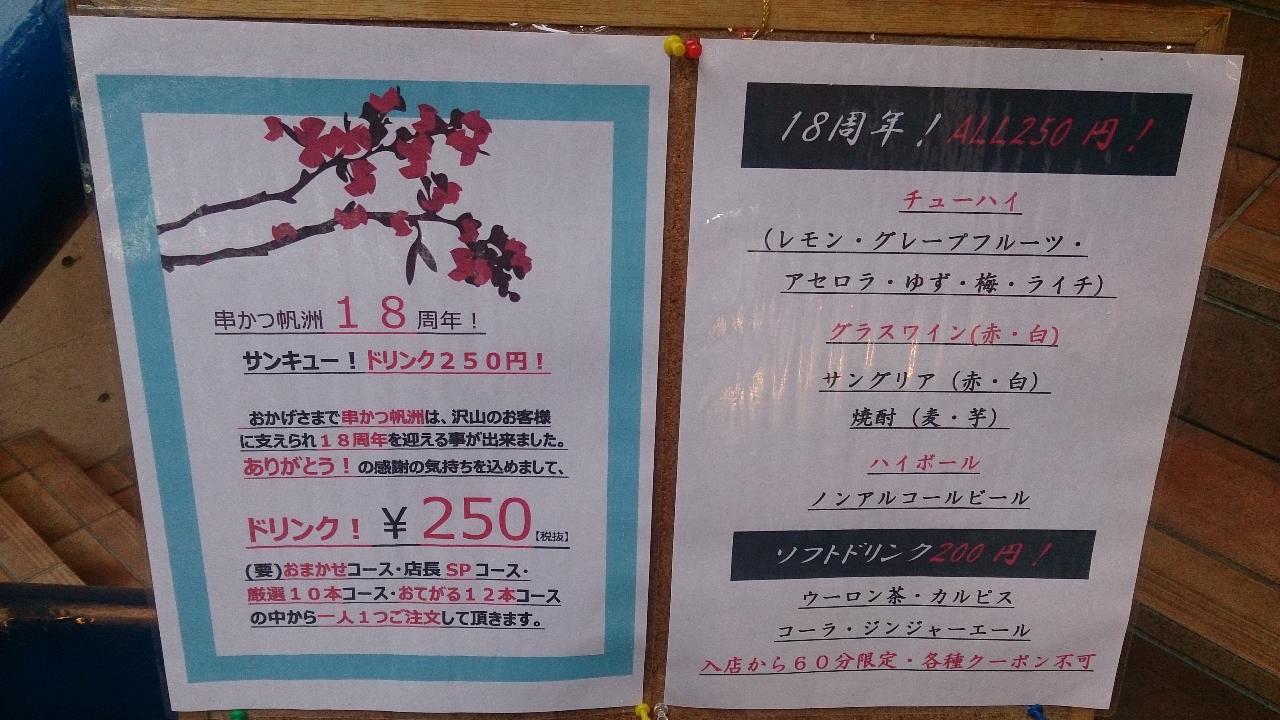 串かつ帆洲１８周年！
サンキュー！ドリンク２５０円！
おかげさまで串かつ帆洲は、沢山のお客様
に支えられ１８周年を迎える事が出来ました。
ありがとう！の感謝の気持ちを込めまして、
ドリンク！￥250【税抜】
(要)おまかせコース・店長SPコース・
厳選１０本コース・おてがる１２本コース
の中から一人１つご注文して頂きます。
18周年！ALL250円！
チューハイ
（レモン・グレープフルーツ・
アセロラ・ゆず・梅・ライチ）
グラスワイン(赤・白)
サングリア（赤・白）
焼酎（麦・芋）
ハイボール
ノンアルコールビール
ソフトドリンク200円！
ウーロン茶・カルピス
コーラ・ジンジャーエール
入店から６０分限定・各種クーポン不可